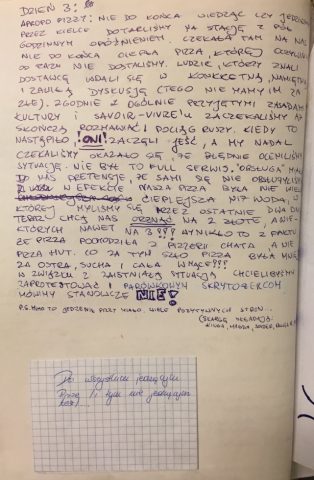 DZIEŃ 3:
APROPO PIZZY: NIE DO KOŃCA WIEDZĄC CZY JEDZIEMY
PRZEZ KIELCE DOTARLIŚMY NA STACJĘ Z PÓŁ
GODZINNYM OPÓŹNIENIEM. CZEKAŁA TAM NA NAS
NIE DO KOŃCA CIEPŁA PIZZA, KTÓREJ
OD RAZU NIE DOSTALIŚMY. LUDZIE, KTÓRZY ZNALI
DOSTAWCĘ WDALI SIĘ W KONKRETNĄ, NAMIĘTNĄ
I ZAWIŁĄ DYSKUSJĘ (TEGO NIE MAMY IM ZA
ZŁE). ZGODNIE Z OGÓLNIE PRZYJĘTYMI ZASADAMI
KULTURY I SAVOIR-VIVRE'U ZACZEKALIŚMY AŻ
SKOŃCZĄ ROZMAWIAĆ I POCIĄG RUSZY. KIEDY TO
NASTĄPIŁO, "ONI" ZACZĘLI JEŚĆ, A MY NADAL
CZEKALIŚMY OKAZAŁO SIĘ, ŻE BŁĘDNIE OCENILIŚMY
SYTUACJĘ. NIE BYŁ TO FULL SERWIS. "OBSŁUGA" MIAŁA
DO NAS PRETENSJE, ŻE SAMI SIĘ NIE OBSŁUŻYLIŚMY
W EFEKCIE NASZA PIZZA BYŁA NIE WIELE
CIEPLEJSZA NIŻ WODA, W
KTÓREJ MYLIŚMY SIĘ PRZEZ OSTATNIE DWA DNI
TERAZ CHCĄ NAS ORŻNĄĆ NA 2 ZŁOTE, A NIE-
KTÓRYCH NAWET NA 3??? WYNIKŁO TO Z FAKTU
ŻE PIZZA POCHODZIŁA Z PIZZERII CHATA, A NIE
PIZZA HUT. CO ZA TYM SZŁO PIZZA BYŁA MNIEJ-
ZA OSTRA, SUCHA I CAŁA W
W ZWIĄZKU Z ZAISTNIAŁĄ SYTUACJĄ CHCIELIBYŚMY
ZAPROTESTOWAĆ I PARÓWKOWYM SKRYTOŻERCOM
MÓWIMY STANOWCZE NIE!
P.S. MIMO TO JEDZENIE PIZZY MIAŁO WIELE POZYTYWNYCH STRON...
Do wszystkich jedzących
i tym nie jedzących